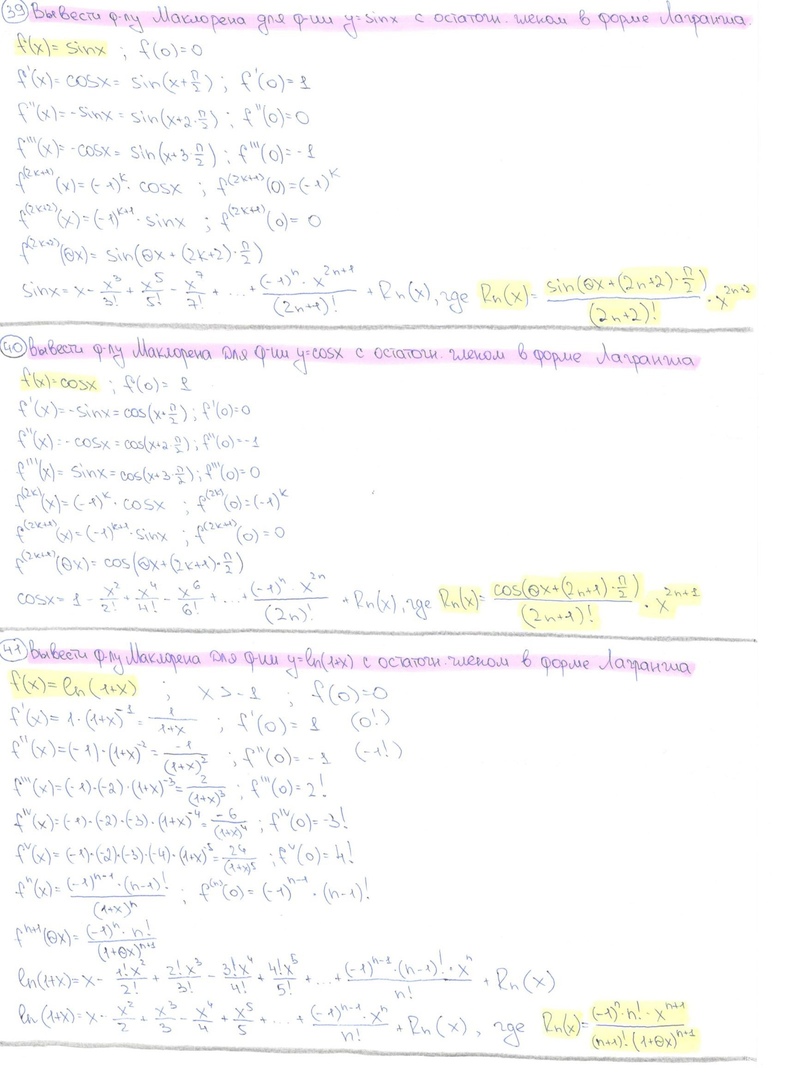 39 Вывести ф-лу Маклорена для ф-ии y=sinx с остаточн. членом в форме Лагранжа
f(x)= sinx ; f(0)=0
f'(x)=cosx= sin(x+π/2) ; f'(0)=1
f''(x)=-sinx= sin(x+2·π/2) ; f''(0)=0
f'''(x)=-cosx= sin(x+3·π/2) ; f'''(0)=-1
f^(2k+1)(x)=(-1)^k · cosx ; f^(2k+1)(0)=(-1)^k
f^(2k+2)(x)=(-1)^(k+1) · sinx ; f^(2k+1)(0)= 0
f^(2k+2)(θx)= sin(θx+(2k+2)·π/2)
sinx= x- x^3/3! + x^5/5! - x^7/7! + ...+ (-1)^n · x^(2n+1)/(2n+1)! + Rn(x), где Rn(x)= sin(θx+(2n+2)·π/2)/(2n+2)! · x^(2n+2)
40 Вывести ф-лу Маклорена для ф-ии y=cosx с остаточн. членом в форме Лагранжа
f(x)=cosx ; f(0)= 1
f'(x)=-sinx=cos(x+π/2) ; f'(0)=0
f''(x)=-cosx=cos(x+2·π/2) ; f''(0)=-1
f'''(x)= sinx=cos(x+3·π/2) ; f'''(0)=0
f^(2k)(x)=(-1)^k · cosx ; f^(2k)(0)=(-1)^k
f^(2k+1)(x)=(-1)^(k+1) · sinx ; f^(2k+1)(0)=0
f^(2k+1)(θx)= cos(θx+(2k+1)·π/2)
cosx= 1 - x^2/2! + x^4/4! - x^6/6! + ...+ (-1)^n · x^(2n)/(2n)! + Rn(x), где Rn(x)= cos(θx+(2n+1)·π/2)/(2n+1)! · x^(2n+1)
41 Вывести ф-лу Маклорена для ф-ии y=ln(1+x) с остаточн. членом в форме Лагранжа
f(x)=ln(1+x) ; x>-1 ; f(0)=0
f'(x)= 1·(1+x)^-1= 1/(1+x) ; f'(0)= 1 (0!)
f''(x)=(-1)·(1+x)^-2= -1/(1+x)^2 ; f''(0)=-1 (-1!)
f'''(x)=(-1)·(-2)·(1+x)^-3= 2/(1+x)^3 ; f'''(0)=2!
f^IV(x)=(-1)·(-2)·(-3)·(1+x)^-4= -6/(1+x)^4 ; f^IV(0)=-3!
f^V(x)=(-1)·(-2)·(-3)·(-4)·(1+x)^-5= 24/(1+x)^5 ; f^V(0)=4!
f^n(x)= (-1)^(n-1) · (n-1)!/(1+x)^n ; f^(n)(0)=(-1)^(n-1) · (n-1)!
f^(n+1)(θx)= (-1)^n · n!/(1+θx)^(n+1)
ln(1+x)= x- 1!x^2/2! + 2!x^3/3! - 3!x^4/4! + 4!x^5/5! + ...+ (-1)^(n-1) · (n-1)! · x^n/n! + Rn(x)
ln(1+x)=x- x^2/2 + x^3/3 - x^4/4 + x^5/5 + ...+ (-1)^(n-1) · x^n/n! + Rn(x), где Rn(x)= (-1)^n · n! · x^(n+1)/(n+1)! · (1+θx)^(n+1)